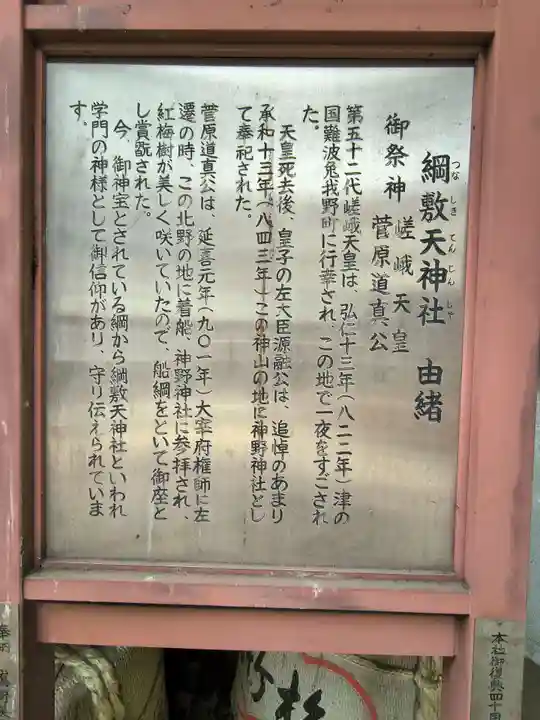 綱敷天神社 由緒
つな しき てん じん しゃ
御祭神 嵯峨天皇
菅原道真公
第五十二代嵯峨天皇は、弘仁十三年(八二二年)津の
国難波兎我野町に行幸され、この地で一夜をすごされ
た。
天皇死去後、皇子の左大臣源融公は、追悼のあまり
承和十三年(八四三年)この神山の地に神野神社とし
て奉祀された。
菅原道真公は、延喜元年(九〇一年)大宰府権師に左
遷の時、この北野の地に着船、神野神社に参拝され、
紅梅樹が美しく咲いていたので、船綱をといて御座と
し賞翫された。
今、御神宝とされている綱から綱敷天神社といわれ
学門の神様として御信仰があり、守り伝えられていま
す。
本社御復興四十周